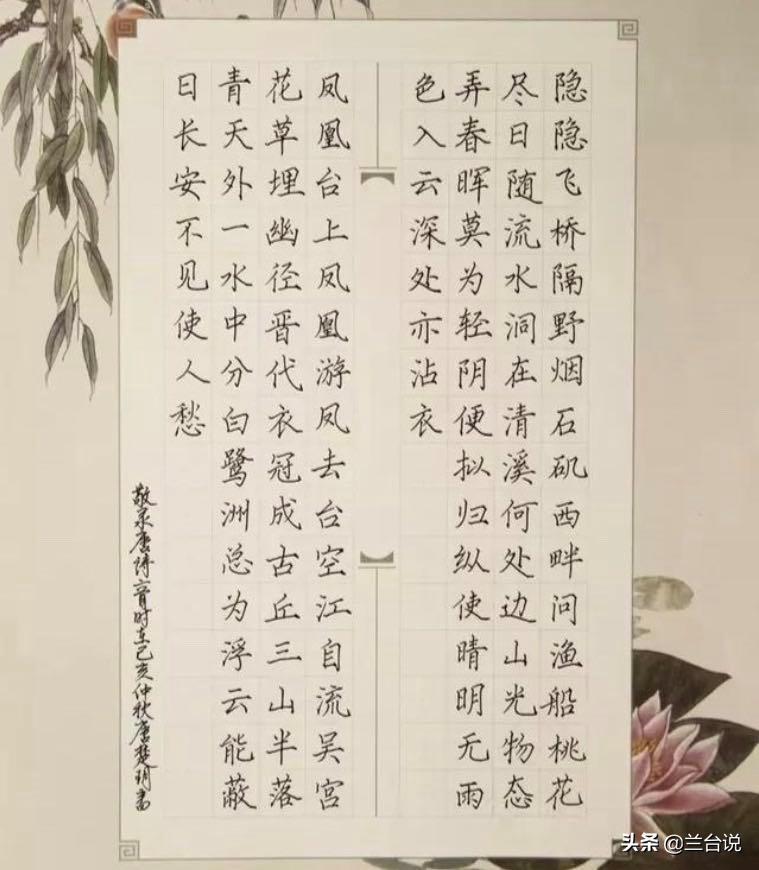 隐隐飞桥隔野烟石矶西畔问渔船桃花
尽日随流水洞在清溪何处边山光物态
弄春晖莫为轻阴便拟归纵使晴明无雨
色入云深处亦沾衣
凤凰台上凤凰游凤去台空江自流吴宫
花草埋幽径晋代衣冠成古丘三山半落
青天外一水中分白鹭洲总为浮云能蔽
日长安不见使人愁
敬录唐诗二首时在己亥仲秋唐楚玥书
头条 @兰台说